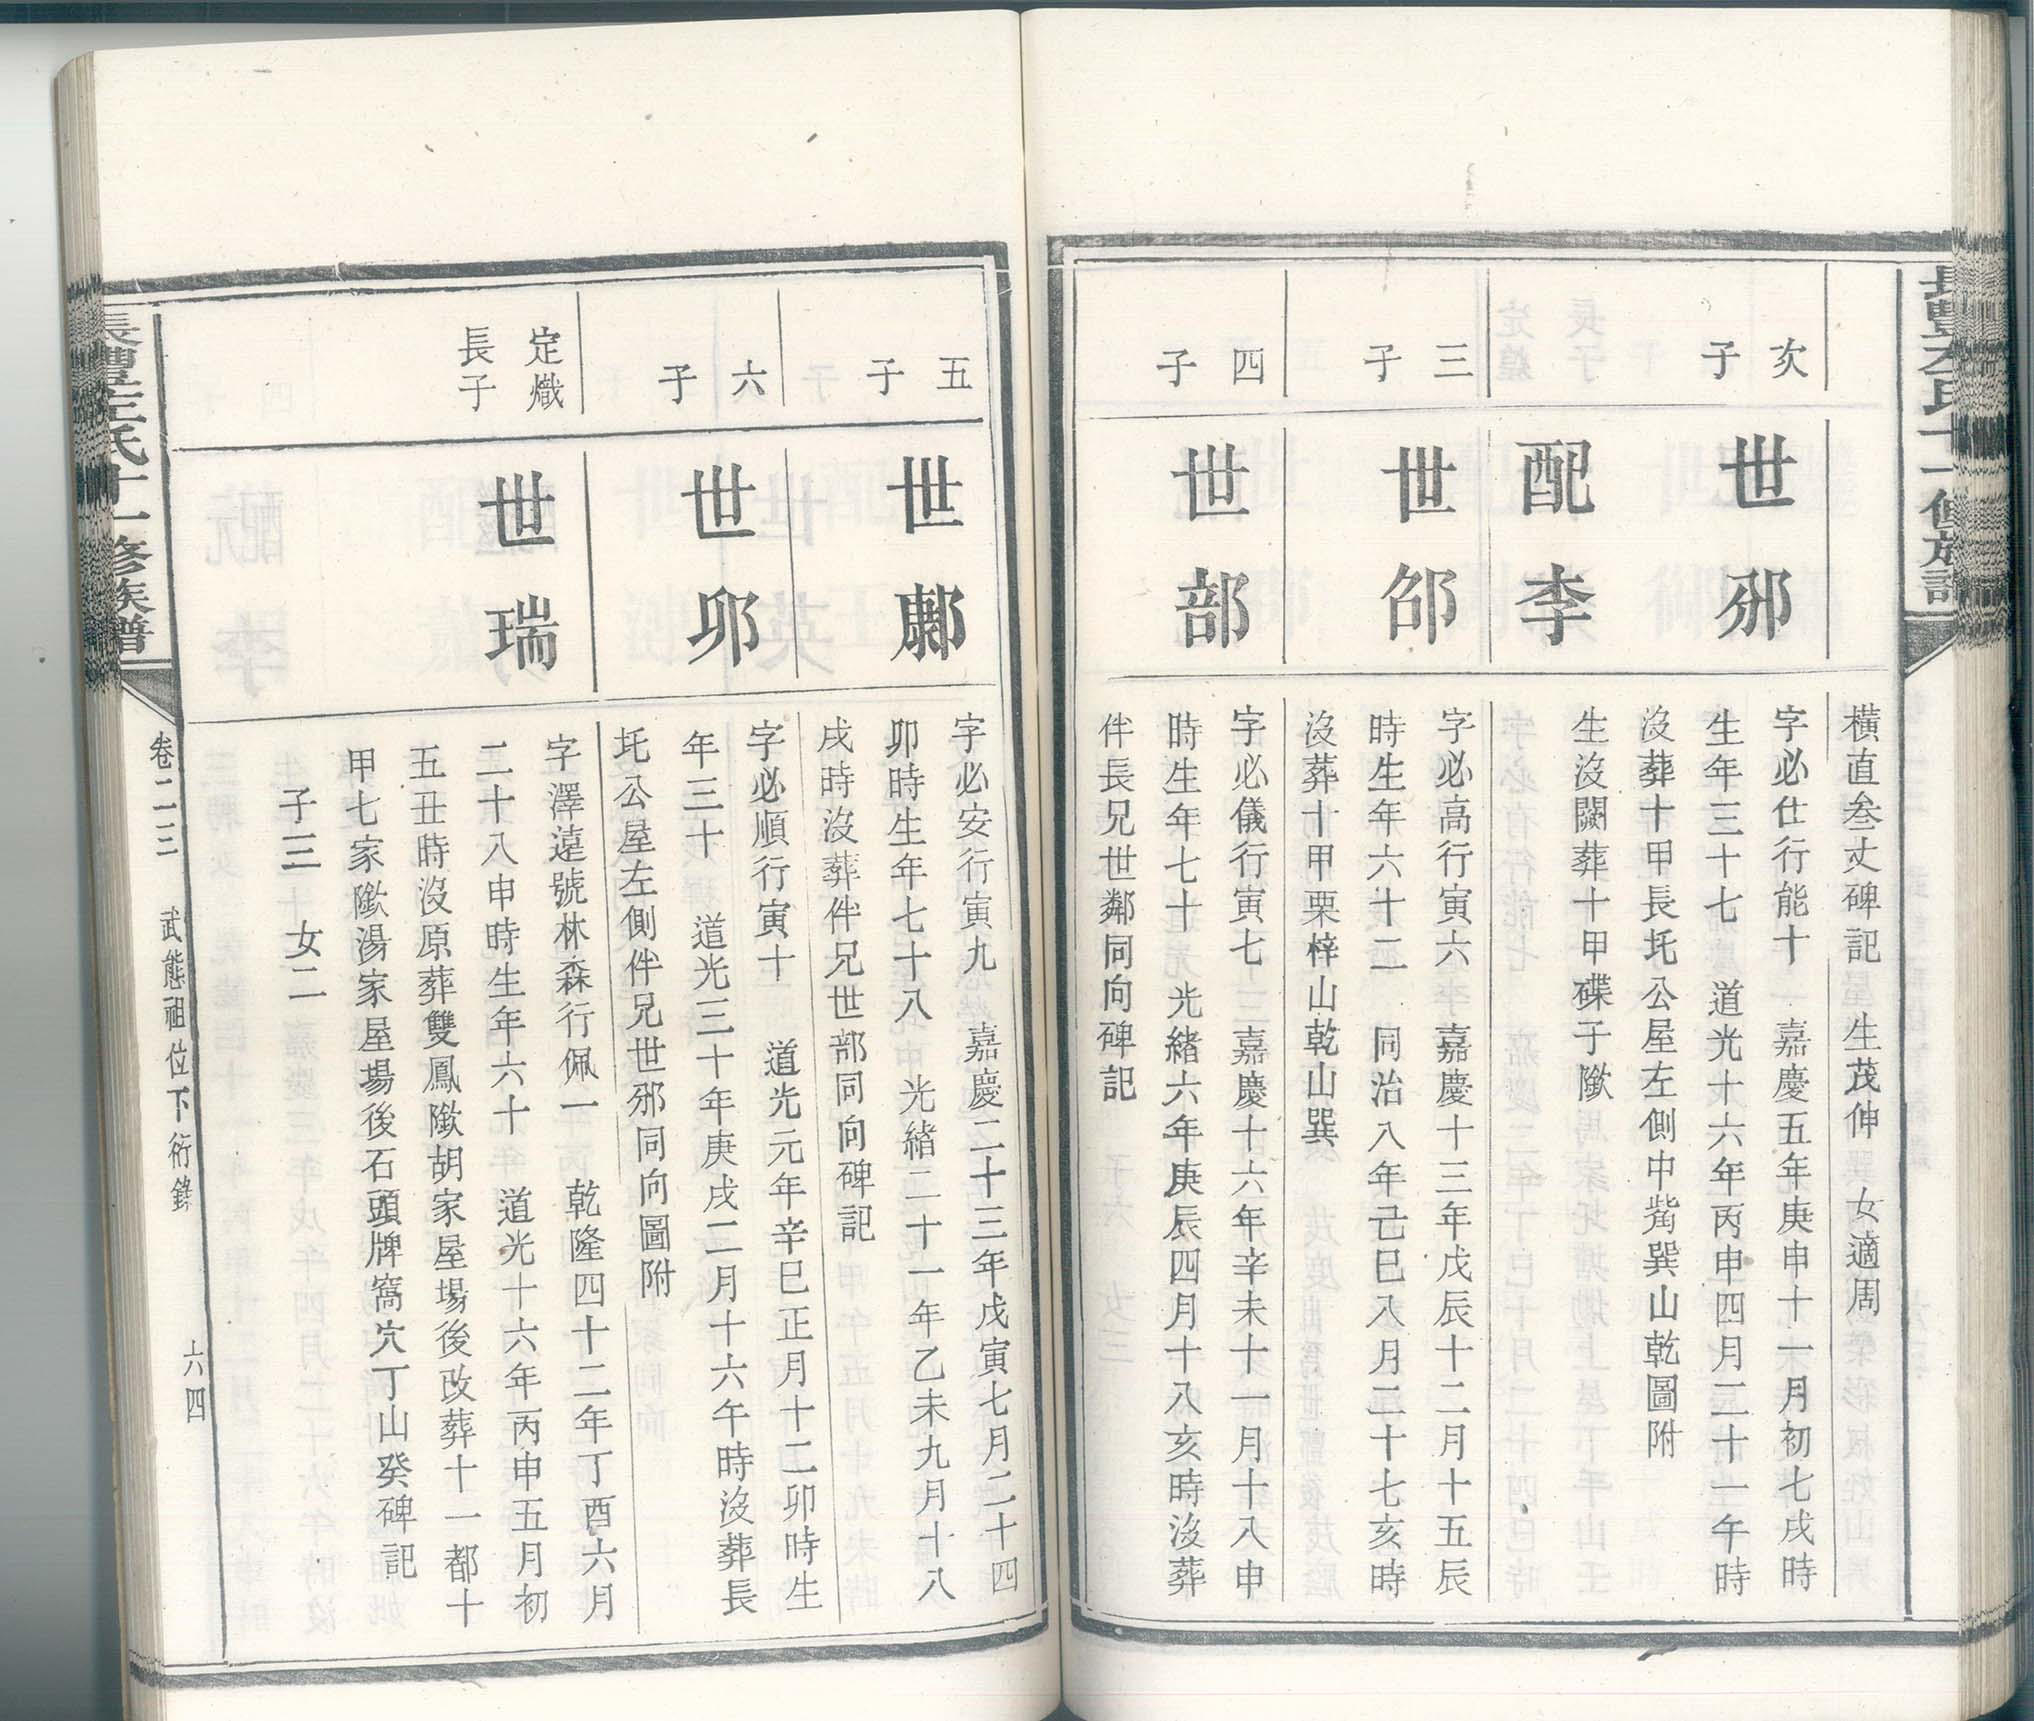 橫直叁丈碑記　生茂伸　女適周
次子
世邠
字必仕行能十一　嘉慶五年庚申十一月初七戌時
生年三十七　道光十六年丙申四月二十一午時
沒葬十甲長圫公屋左側中嘴巽山乾圖附
配李
生沒闕葬十甲磜子㘭
三子
世邵
字必高行寅六　嘉慶十三年戊辰十二月十五辰
時生年六十二　同治八年己巳八月二十七亥時
沒葬十甲栗梓山乾山巽
四子
世部
字必儀行寅七　嘉慶十六年辛未十一月十八申
時生年七十　光緒六年庚辰四月十八亥時沒葬
伴長兄世鄰同向碑記
五子
世鄺
字必安行寅九　嘉慶二十三年戊寅七月二十四
卯時生年七十八　光緒二十一年乙未九月十八
戌時沒葬伴兄世部同向碑記
六子
世邛
字必順行寅十　道光元年辛巳正月十二卯時生
年三十　道光三十年庚戌二月十六午時沒葬長
圫公屋左側伴兄世邠同向圖附
定熾長子
世瑞
字澤遠號林森行佩一　乾隆四十二年丁酉六月
二十八申時生年六十　道光十六年丙申五月初
五丑時沒原葬雙鳳㘭胡家屋場後改葬十一都十
甲七家㘭湯家屋場後石頭牌窩穴丁山癸碑記
子三　女二
長澧左氏十一修族譜
卷二三　武態祖位下衍錄　六四